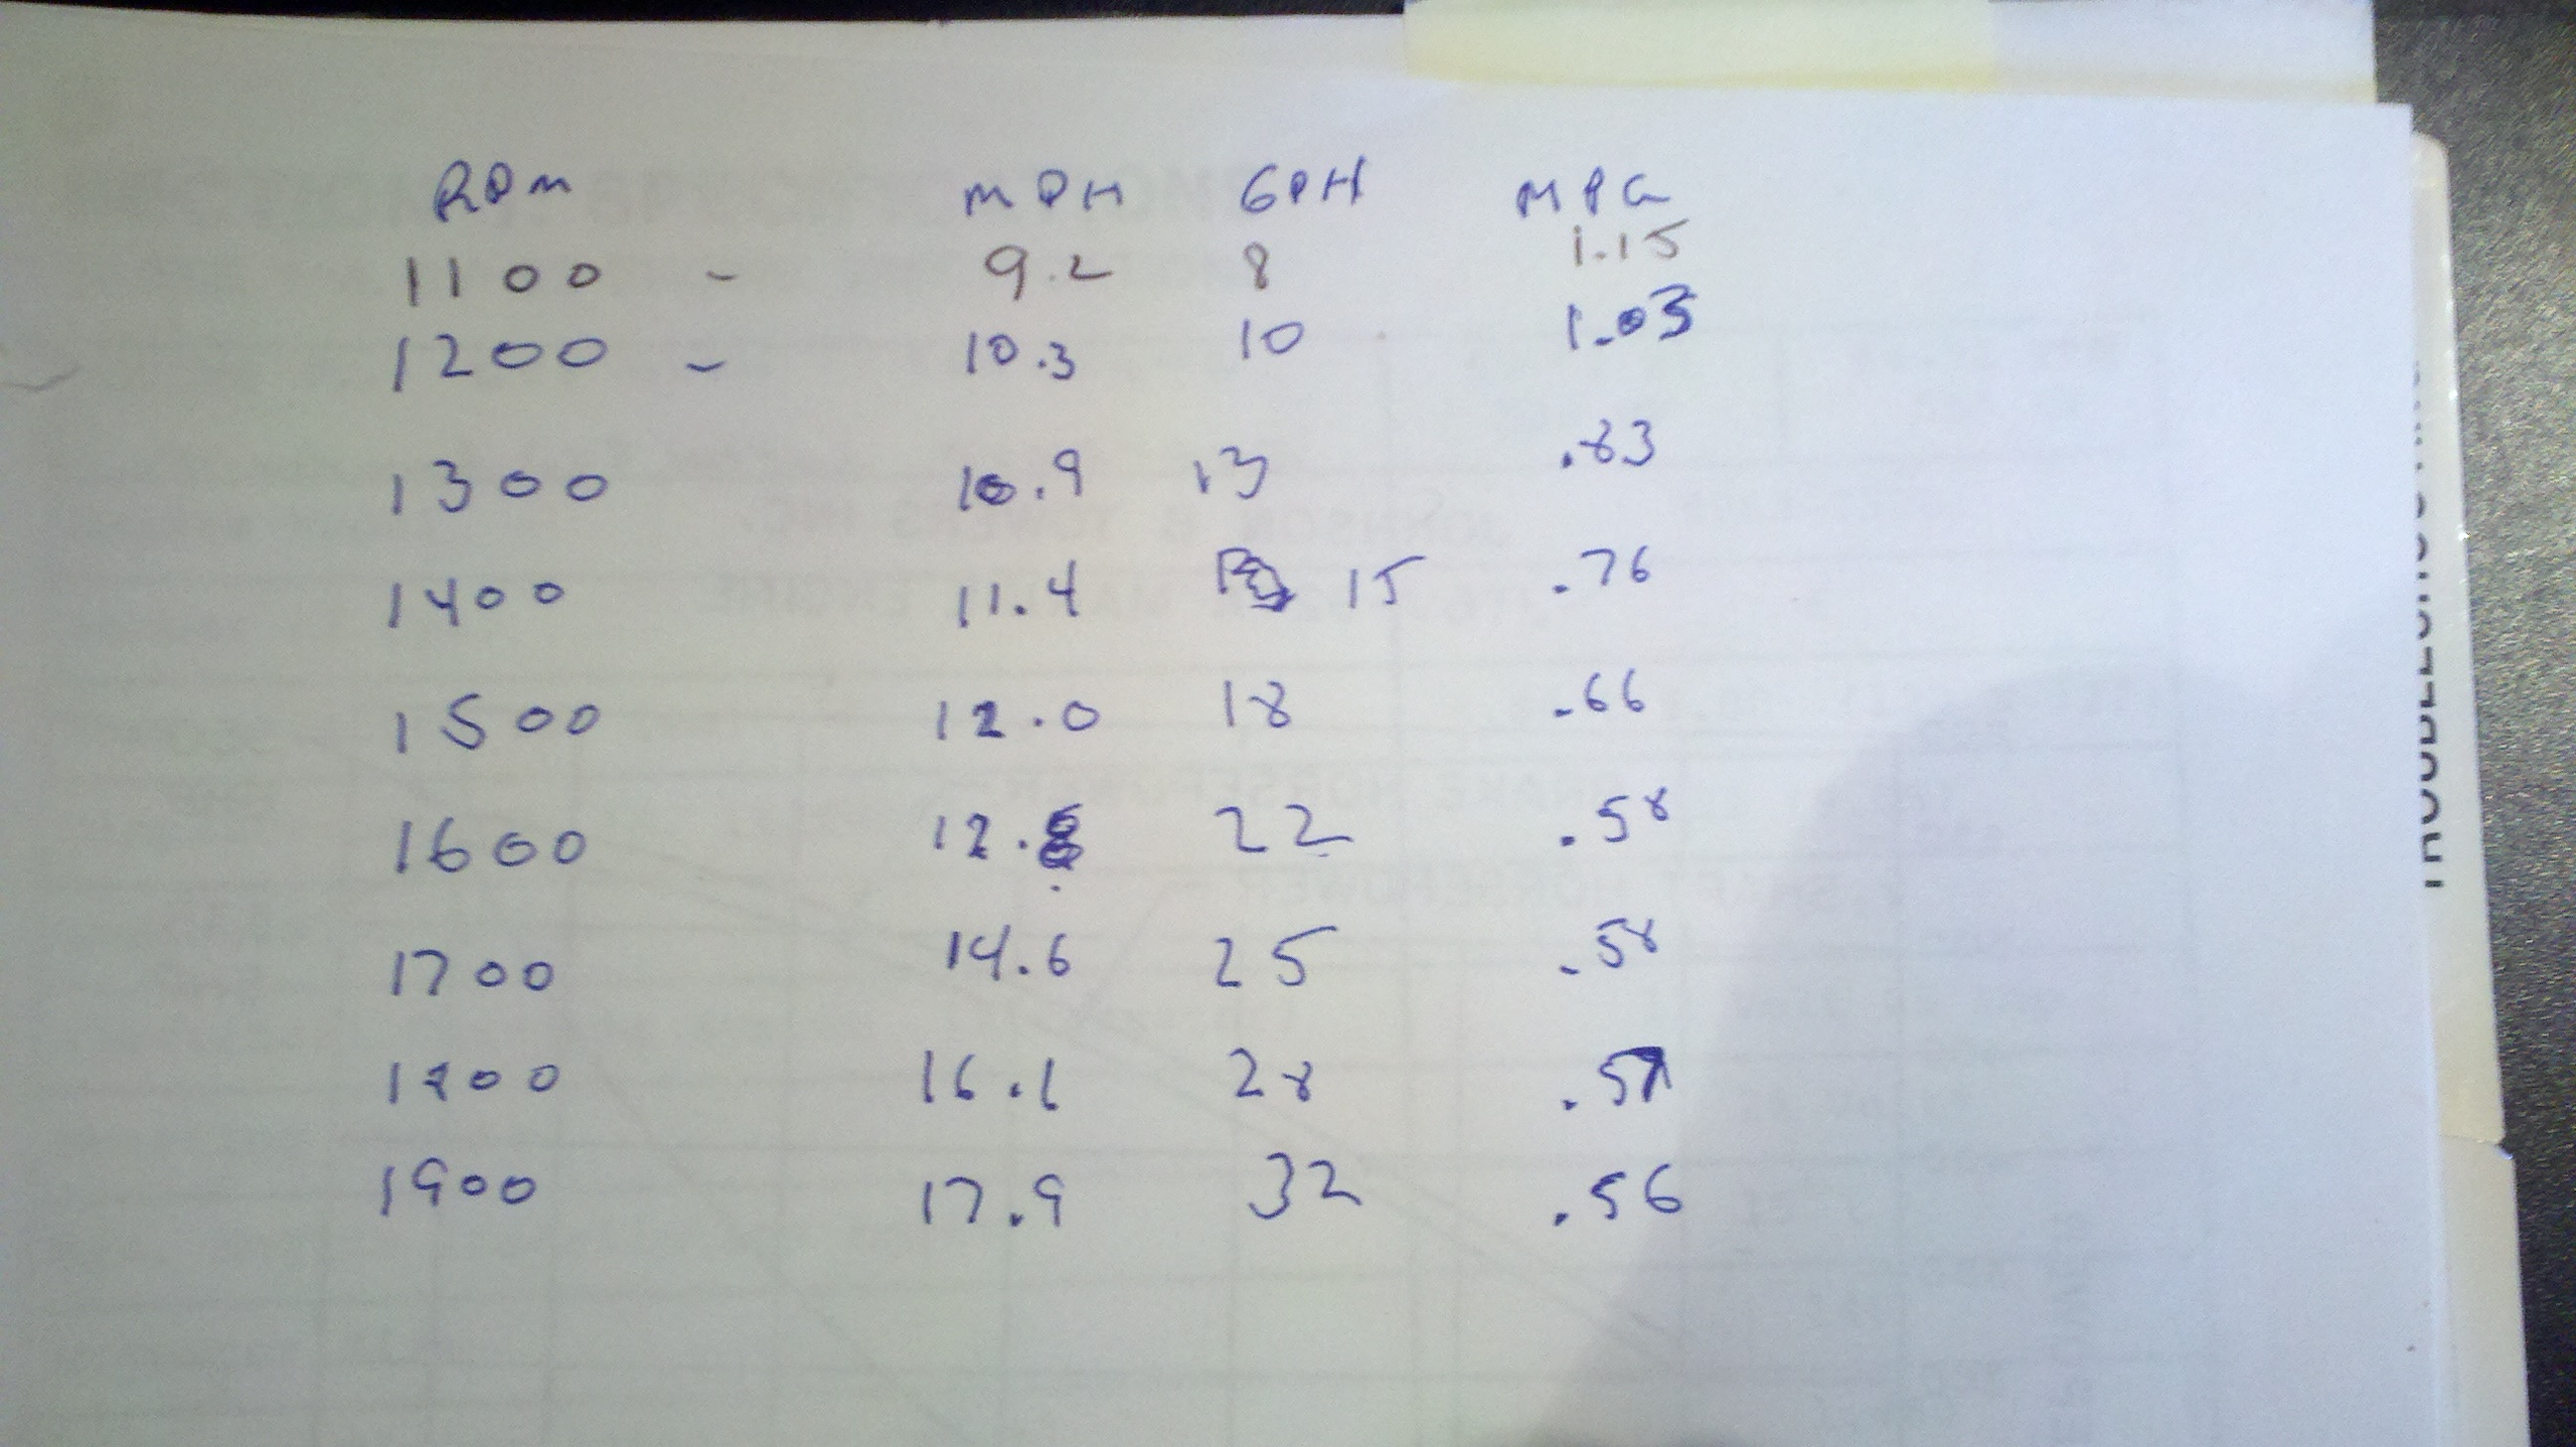 RPM MPH GPH MPG
1100 - 9.2 8 1.15
1200 - 10.3 10 1.03
1300 10.9 13 .83
1400 11.4 15 .76
1500 12.0 18 .66
1600 12.8 22 .58
1700 14.6 25 .58
1800 16.1 28 .57
1900 17.9 32 .56